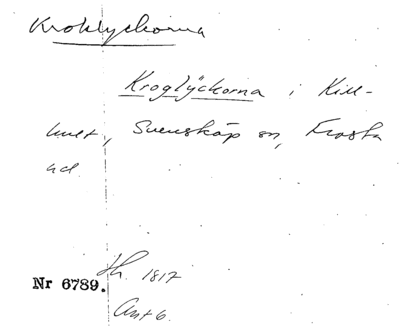 Kroklyckorna
Kroglyckorna i Kill-
hult, Svensköp sn, Frosta
hd.
Nr 6789. Jh. 1817
Ant 6.